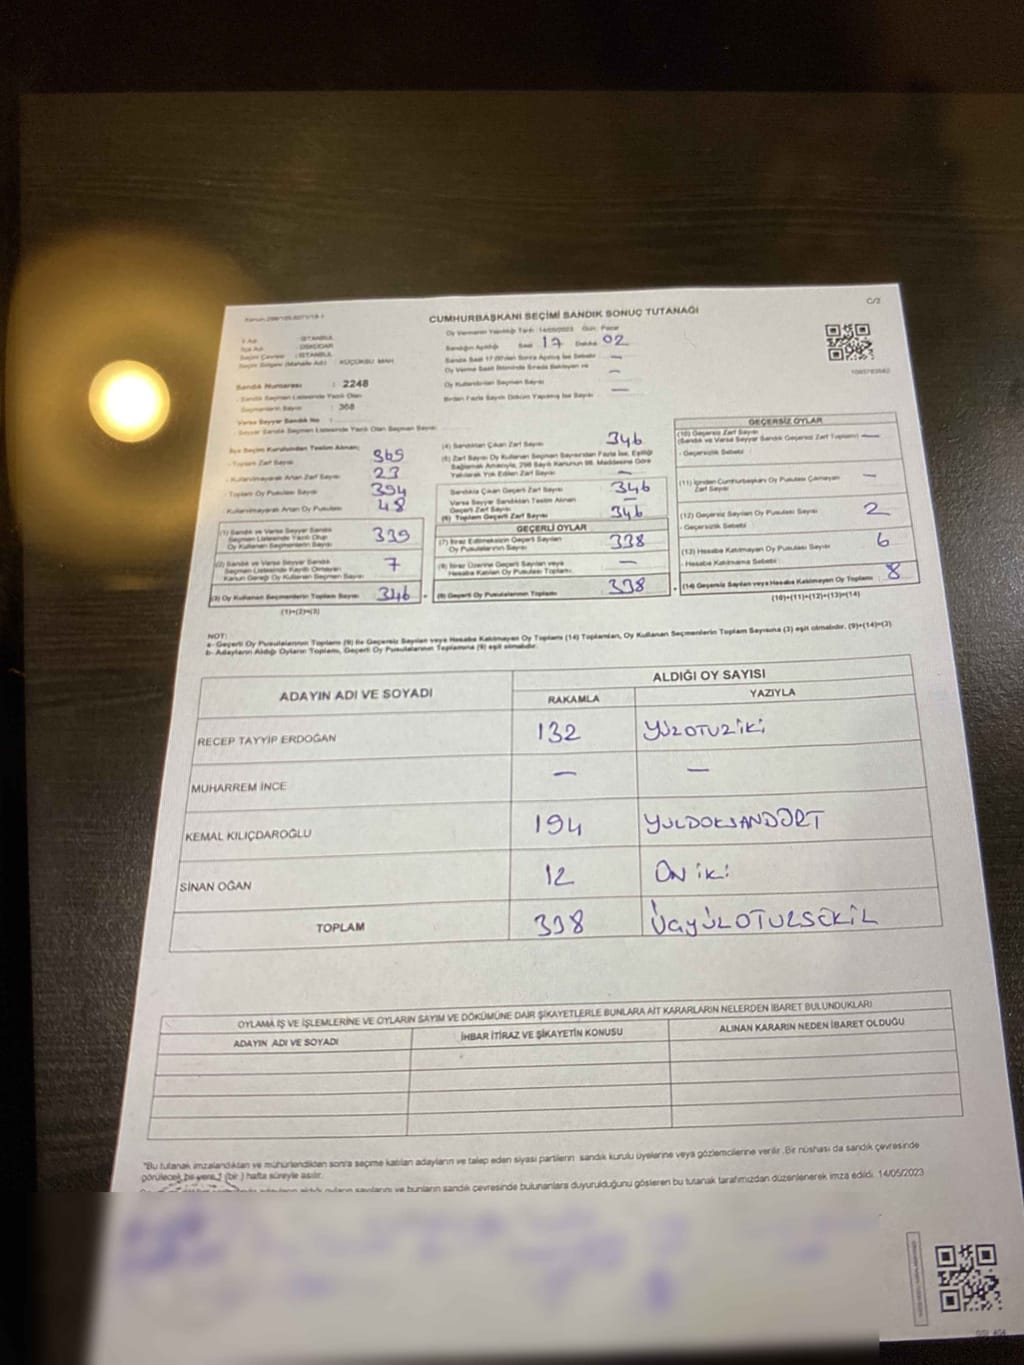 C/2
CUMHURBAŞKANI SEÇİMİ SANDIK SONUÇ TUTANAĞI
İl Adı : İSTANBUL
İlçe Adı : ÜSKÜDAR
Seçim Çevresi : İSTANBUL
Seçim Bölgesi (Mahalle Adı) : KÜÇÜKSU MAH.
Sandık Numarası : 2248
Sandık Seçmen Listesinde Yazılı Olan
Seçmenlerin Sayısı : 368
Varsa Seyyar Sandık No :
Seyyar Sandık Seçmen Listesinde Yazılı Olan Seçmen Sayısı :
Oy Vermenin Yapıldığı Tarih : 14/05/2023 Gün: Pazar
Sandığın Açıldığı Saat 17 Dakika 02
Sandık Saat 17:00'den Sonra Açılmış İse Sebebi : —
Oy Verme Saati Bitiminde Sırada Bekleyen ve —
Oy Kullandırılan Seçmen Sayısı
Birden Fazla Sayım Döküm Yapılmış İse Sayısı —
İlçe Seçim Kurulundan Teslim Alınan;
- Toplam Zarf Sayısı 365
- Kullanılmayarak Artan Zarf Sayısı 23
- Toplam Oy Pusulası Sayısı 394
- Kullanılmayarak Artan Oy Pusulası 48
(1) Sandık ve Varsa Seyyar Sandık
Seçmen Listesinde Yazılı Olup
Oy Kullanan Seçmenlerin Sayısı 339
(2) Sandık ve Varsa Seyyar Sandık
Seçmen Listesinde Kayıtlı Olmayan
Kanun Gereği Oy Kullanan Seçmen Sayısı 7
(3) Oy Kullanan Seçmenlerin Toplam Sayısı 346
(1)+(2)=(3)
(4) Sandıktan Çıkan Zarf Sayısı 346
(5) Zarf Sayısı Oy Kullanan Seçmen Sayısından Fazla İse, Eşitliği
Sağlamak Amacıyla, 298 Sayılı Kanunun 98. Maddesine Göre
Yakılarak Yok Edilen Zarf Sayısı —
Sandıkta Çıkan Geçerli Zarf Sayısı 346
Varsa Seyyar Sandıktan Teslim Alınan
Geçerli Zarf Sayısı —
(6) Toplam Geçerli Zarf Sayısı 346
GEÇERLİ OYLAR
(7) İtiraz Edilmeksizin Geçerli Sayılan
Oy Pusulalarının Sayısı 338
(8) İtiraz Üzerine Geçerli Sayılan veya
Hesaba Katılan Oy Pusulası Toplamı —
(9) Geçerli Oy Pusulalarının Toplamı 338
GEÇERSİZ OYLAR
(10) Geçersiz Zarf Sayısı
(Sandık ve Varsa Seyyar Sandık Geçersiz Zarf Toplamı) —
- Geçersizlik Sebebi :
(11) İçinden Cumhurbaşkanı Oy Pusulası Çıkmayan
Zarf Sayısı —
(12) Geçersiz Sayılan Oy Pusulası Sayısı 2
- Geçersizlik Sebebi
(13) Hesaba Katılmayan Oy Pusulası Sayısı 6
- Hesaba Katılmama Sebebi :
(14) Geçersiz Sayılan veya Hesaba Katılmayan Oy Toplamı 8
(10)+(11)+(12)+(13)=(14)
NOT:
a- Geçerli Oy Pusulalarının Toplamı (9) ile Geçersiz Sayılan veya Hesaba Katılmayan Oy Toplamı (14) Toplamları, Oy Kullanan Seçmenlerin Toplam Sayısına (3) eşit olmalıdır. (9)+(14)=(3)
b- Adayların Aldığı Oyların Toplamı, Geçerli Oy Pusulalarının Toplamına (9) eşit olmalıdır.
ADAYIN ADI VE SOYADI
ALDIĞI OY SAYISI
RAKAMLA YAZIYLA
RECEP TAYYİP ERDOĞAN 132 YÜZOTUZİKİ
MUHARREM İNCE — —
KEMAL KILIÇDAROĞLU 194 YÜZDOKSANDÖRT
SİNAN OĞAN 12 ON İKİ
TOPLAM 338 ÜÇYÜZOTUZSEKİZ
OYLAMA İŞ VE İŞLEMLERİNE VE OYLARIN SAYIM VE DÖKÜMÜNE DAİR ŞİKAYETLERLE BUNLARA AİT KARARLARIN NELERDEN İBARET BULUNDUKLARI
ADAYIN ADI VE SOYADI İHBAR İTİRAZ VE ŞİKAYETİN KONUSU ALINAN KARARIN NEDEN İBARET OLDUĞU
"Bu tutanak imzalandıktan ve mühürlendikten sonra seçime katılan adayların ve talep eden siyasi partilerin sandık kurulu üyelerine veya gözlemcilerine verilir. Bir nüshası da sandık çevresinde
görülecek bir yere 1 (bir ) hafta süreyle asılır.
adayların aldığı oyların sayılarını ve bunların sandık çevresinde bulunanlara duyurulduğunu gösteren bu tutanak tarafımızdan düzenlenerek imza edildi. 14/05/2023